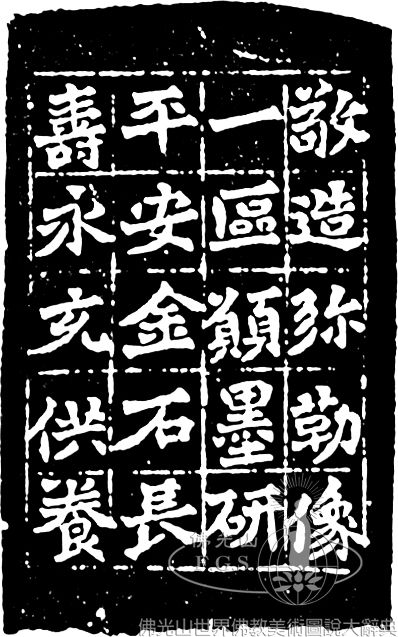 敬造弥勒像
一區願墨研
平安金石長
壽永充供養
佛光山
FGS
佛光山世界佛教美術圖說大辭典